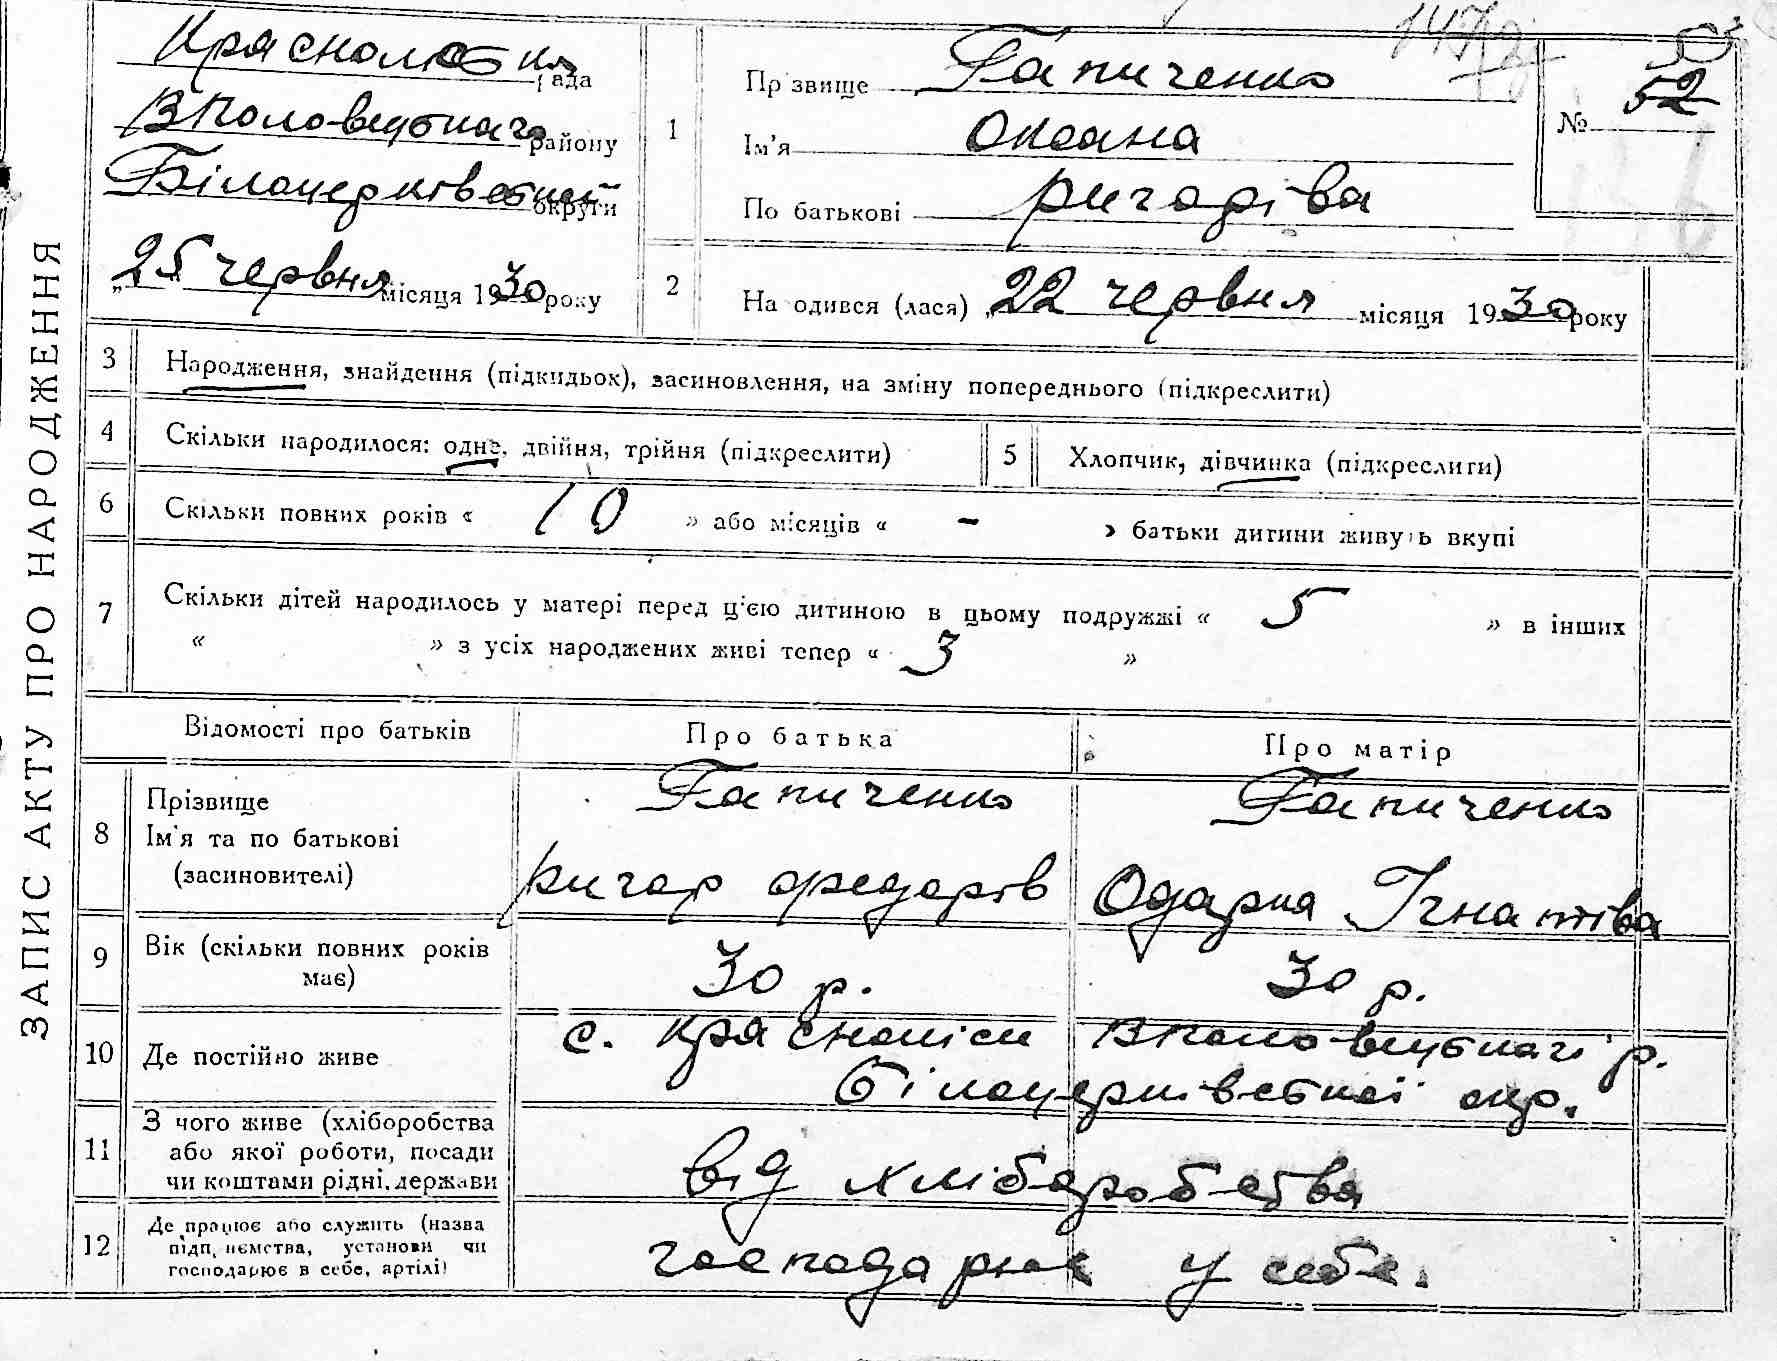 ЗАПИС АКТУ ПРО НАРОДЖЕННЯ
Краснолюбська рада
Вполовецького району
Білоцерківської округи
„25" червня місяця 1930 року
1
Прізвище Гапиченко
Ім'я Оксана
По батькові ригорівa
№ 52
2
Народився (лася) „22 червня місяця 1930 року
3 Народження, знайдення (підкидьок), засиновлення, на зміну попереднього (підкреслити)
4 Скільки народилося: одне, двійня, трійня (підкреслити)
5 Хлопчик, дівчинка (підкреслити)
6 Скільки повних років « 10 » або місяців « - » батьки дитини живуть вкупі
7 Скільки дітей народилось у матері перед ц'єю дитиною в цьому подружжі « 5 » в інших
« » з усіх народжених живі тепер « 3 »
Відомості про батьків Про батька Про матір
8 Прізвище
Ім'я та по батькові
(засиновителі)
Гапиченко Гапиченко
Федорів Одарка Ігнатіва
9 Вік (скільки повних років
має)
30 р. 30 р.
10 Де постійно живе
с. Красноліси р.
Білоцерківської окр.
11 З чого живе (хліборобства
або якої роботи, посади
чи коштами рідні, держави
від хліборобства
12 Де працює або служить (назва
підприємства, установи чи
господарює в себе, артілі)
господарює у себе.